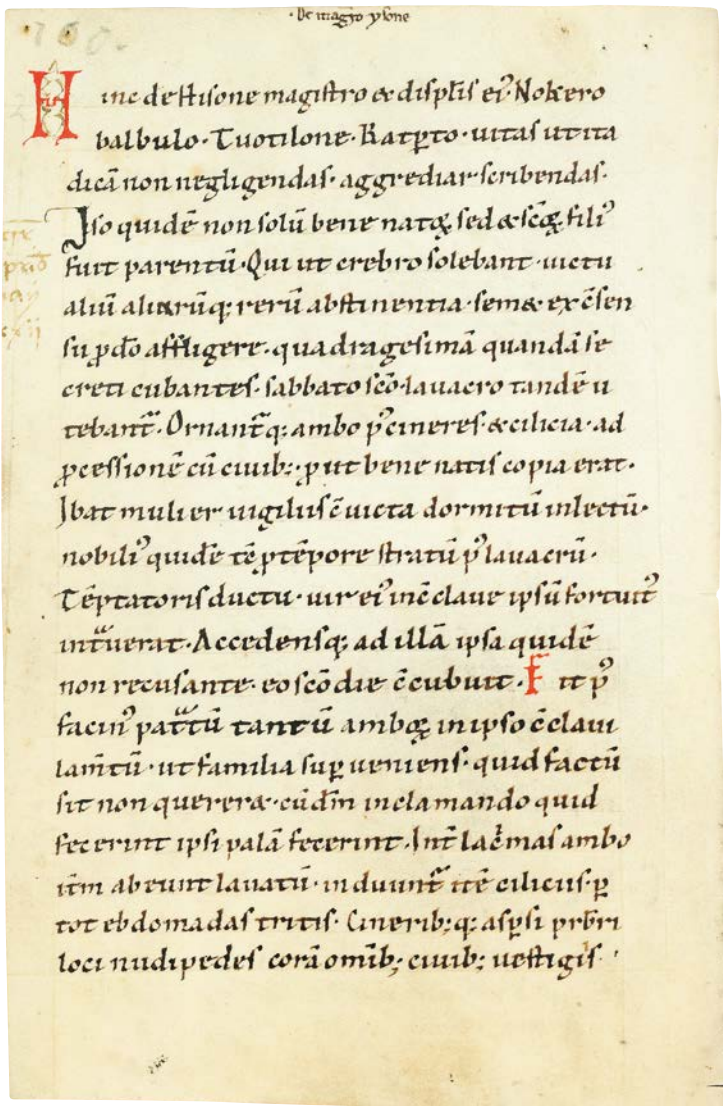 · De magr̄o ysone
Hinc de Hisone magistro & displīs ei᾽ Nokero
balbulo · Tuotilone · Ratꝑto · uitas ut ita
dicā non negligendas · aggrediar scribendas ·
Iso quidē non solū bene natoꝝ sed & scōꝝ fili᾽
fuit parentū · Qui ut crebro solebant · uictu
aliū aliarūq; rerū abstinentia · sem& ex c̄sen
su ꝓ dō affligere · quadragesimā quandā se
creti cubantes · sabbato scō · lauacro tandē u
tebant᷑ · Ornant᷑q; ambo p᾽ cineres & cilicia · ad
ꝓcessionē cū ciuib; · ꝓut bene natis copia erat ·
Ibat mulier uigiliis c̄uicta dormitū in lectū ·
nobili᾽ quidē tē ꝓ tēpore stratū p᾽ lauacrū ·
Tēptatoris ductu · uir ei᾽ in c̄claue ipsū fortuit᾽
int᷑uerat · Accedensq; ad illā ipsa quidē
non recusante · eo scō die c̄cubuit · Fit p᾽
facin᾽ pat᷑tū tantū amboꝝ in ipso c̄claui
lam̄tū · ut familia suꝑueniens · quid factū
sit non querer& · cū dm̄ inclamando quid
fecerint ipsi palā fecerint · Int̄ lac̄mas ambo
itm̄ abeunt lauatū · induunt᷑ itē ciliciis · ꝑ
tot ebdomadas tritis · Cinerib;q; asꝑsi prb̄ri
loci nudipedes corā omīb; ciuib; uestigis ·